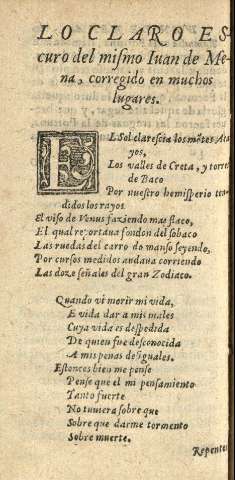 LO CLARO ES-
curo del mismo Iuan de Me-
na, corregido en muchos
lugares.
EL Sol clarescia los mõtes Aca
yos,
Los valles de Creta, y torres
de Baco
Por nuestro hemisperio ten-
didos los rayos
El viso de Venus faziendo mas flaco,
El qual reportaua fondon del sobaco
Las ruedas del carro do manso seyendo,
Por cursos medidos andaua corriendo
Las doze señales del gran Zodiaco.
Quando vi morir mi vida,
E vida dar a mis males
Cuya vida es despedida
De quien fue desconocida
A mis penas desiguales.
Estonces bien me pense
Pense que el mi pensamiento
Tanto fuerte
No tuuiera sobre que
Sobre que darme tormento
Sobre muerte.
Repente